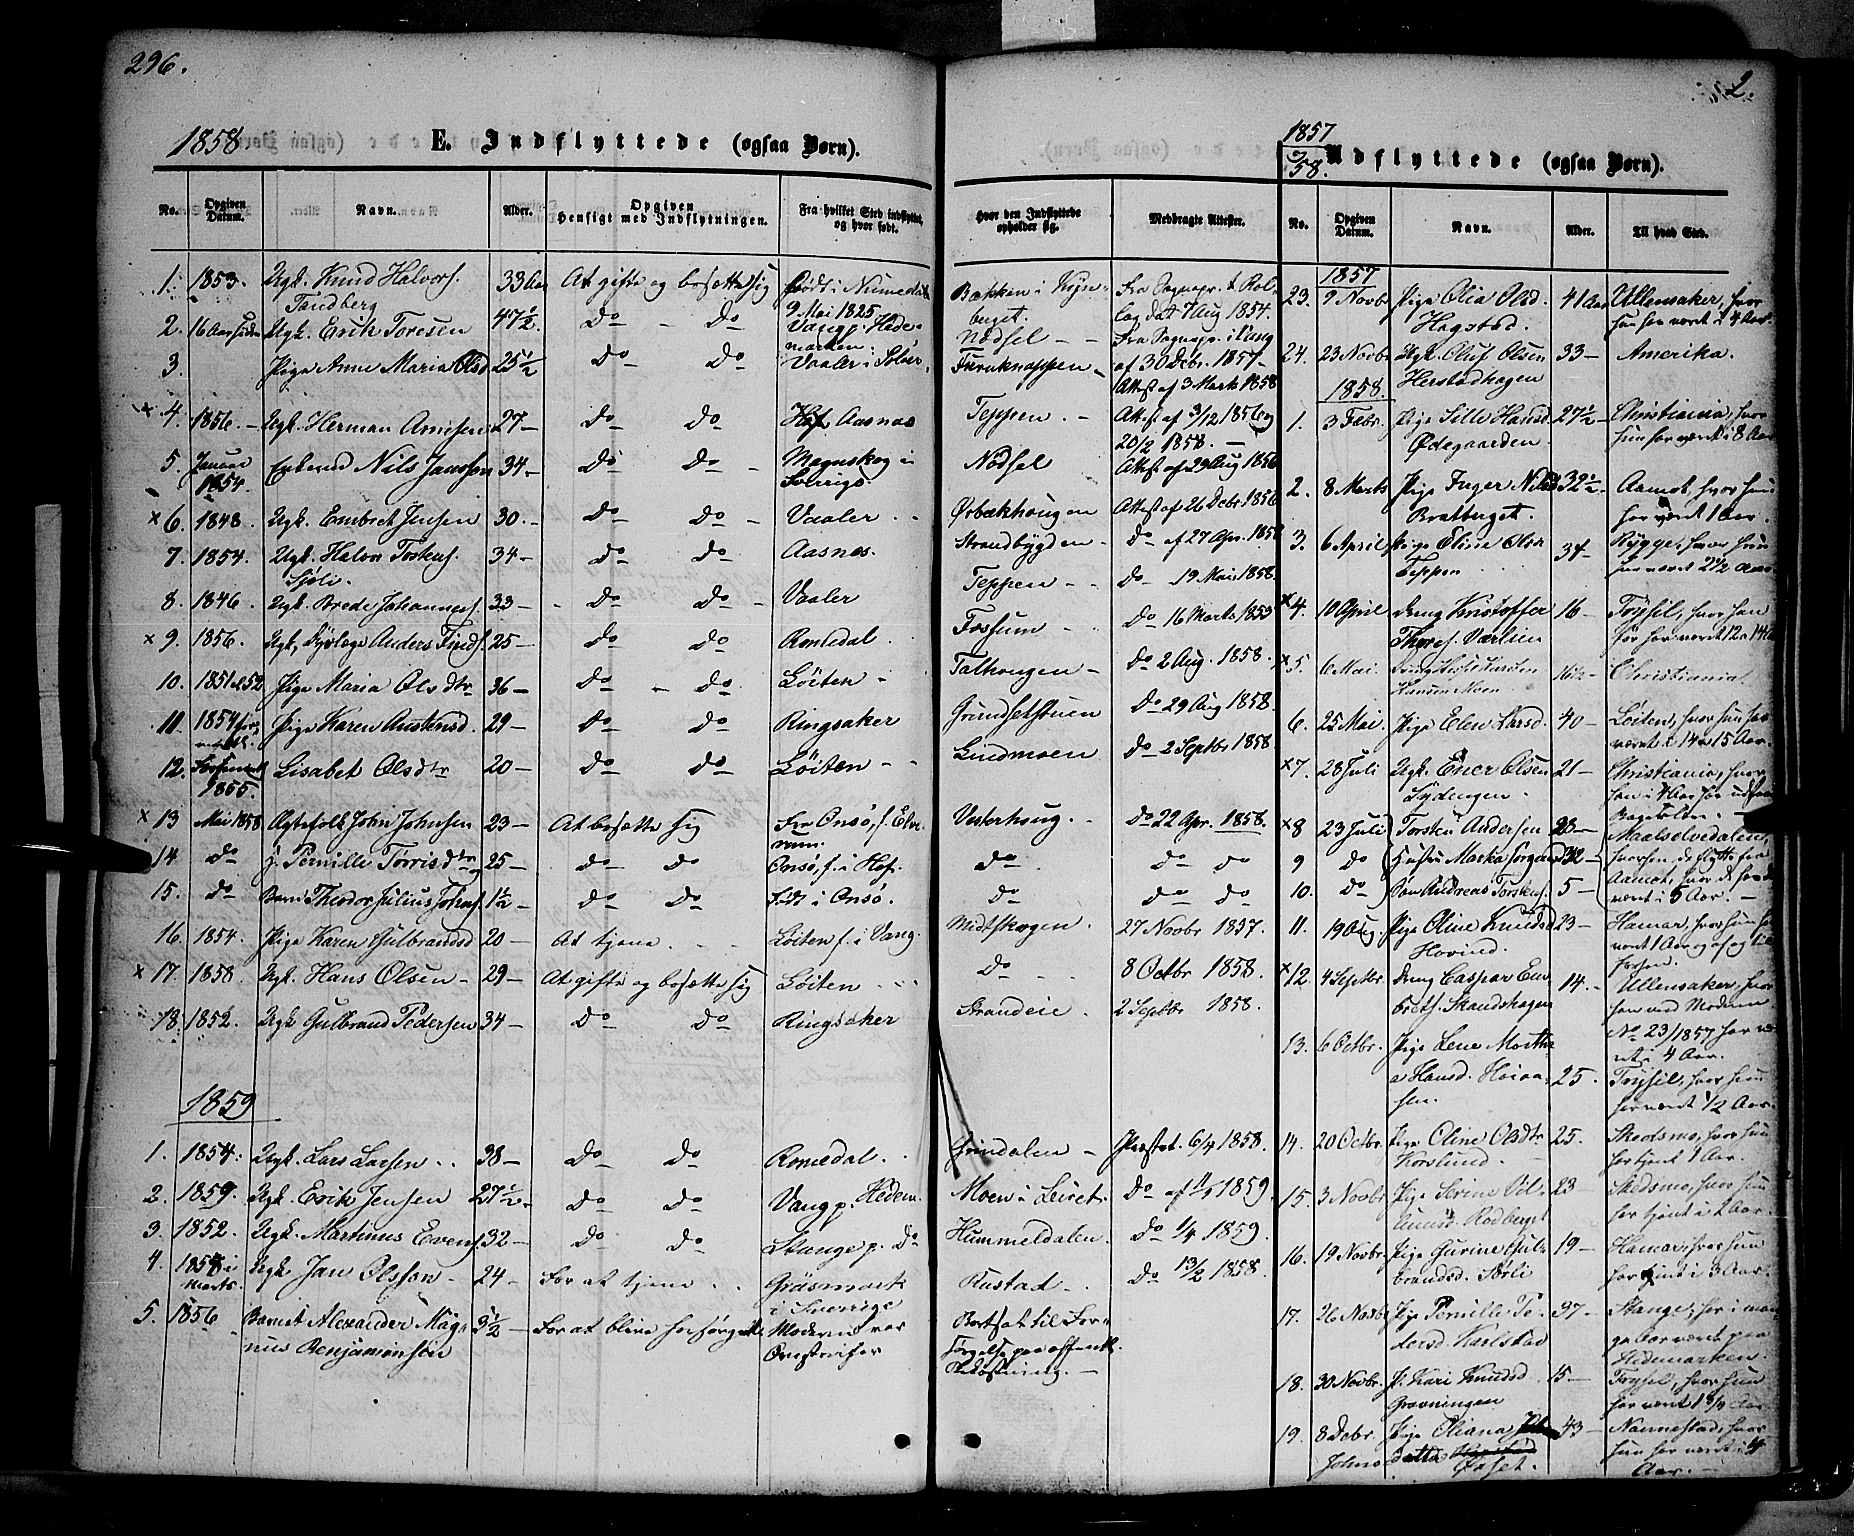 296.
1858. E. Indflyttede (ogsaa Børn).
No. Opgiven Datum. Navn. Alder. Opgiven Hensigt med Indflytningen. Fra hvilket Sted indflyttet, og hvor født. Hvor den Indflyttede opholder sig. Medbragte Attester.
1. 1853. Ugk. Knud Halvors. Tandberg 33 Aar At gifte og bosætte sig Født i Numedal 9 Mai 1825. Bakken i Fra Sognepr. t Rollag dat 7 Aug 1854.
2. 16 Aar siden Ugk. Erich Toresen 47½ Do Do Vang p. Hedemarken. Nødsel Fra Sognepr. i Vang af 30 Decbr. 1857.
3. Pige Anne Maria Olsd 25½ Do Do Vaaler i Solør. Furuknappen Attest af 3 Marts 1858
x 4. 1856. Ugk. Herman Arnesen 27 Do Do Hof, Aasnæs Teppen. Attest af 3/12 1856 og 20/2 1858.
5. Januar 1854. Enkemd Nils Jansson 34 Do Do Mangskog i Sverrige Nødsel Attest af 29 Aug 1856
x 6. 1848. Ugk. Embret Jensen 30. Do Do Vaaler Ørbækhougen Attest af 26 Decbr 1856
7. 1854. Ugk. Halvor Torkens. Sjøli. 34 Do Do Aasnæs. Strandbygden Do af 27 Apr. 1858
8. 1846. Ugk. Brede Johanness. 33 Do Do Vaaler Teppen Do 19 Mai 1858.
x 9. 1856. Ugk. Dyrlæge Anders Finds. 25 Do Do Romedal Fossum Do 16 Marts 1853
10. 1851 el 52 Pige Maria Olsdtr 36 Do Do Løiten Talhougen Do 2 Aug. 1858.
11. 1854 Pige Karen Austensd 29 Do Do Ringsaker Grundsetstuen Do 29 Aug 1858.
12. 1855. Lisabet Olsdtr 20 Do Do Løiten Lindmoen Do 2 Septbr 1858.
x 13 Mai 1858 Ægtefolk John Johnsen 23 At bosætte sig Fra Onsø, f. Elverum. Vesterhoug. Do 22 Apr. 1858.
14. Do g. Pernille Torrisdtr 25 Do Do Onsø, f. i Hof. Do Do Do
15. Do Barn Theodor Julius Johns. 1½ Do Do Født i Onsø. Do Do Do
16. 1854. Pige Karen Gulbrandsd 20 At tjene Løiten f. i Vang. Midtskogen 27 Novbr 1857.
x 17. 1858. Ugk. Hans Olsen 29 At gifte og bosætte sig Løiten Do 8 Octbr 1858.
18. 1852. Ugk Gulbrand Pedersen 34 Do Do Ringsaker Strandeie. 2 Septbr 1858.
1859
1. 1854. Ugk. Lars Larsen 38 Do Do Romedal. Grindalen Præstat. 6/4 1858.
2. 1859. Ugk. Erik Jensen 27½ Do Do Vang p. Hedem. Moen i Leiret. Do af 1859.
3. 1852. Ugk. Martinus Evens. 32 Do Do Stange p. Do Hummeldalen. Do 1/4 1859.
4. 1858 i Marts. Ugk. Jan Olsson 24 For at tjene Gräsmark i Sverrige Rustad Do 13/2 1858.
5. 1856 Barnet Alexander Magnus Benjaminson 3½ For at blive forsørget Moderen var Bortsat til Forsørgelse paa offentl. Bekostning.
2.
1857/58. Udflyttede (ogsaa Børn).
No. Opgiven Datum. Navn. Alder. Til hvad Sted.
1857
23. 9 Novbr Pige Olia Olsd. Hagstad. 41 Aar Ullensaker, hvor hun har været i 4 Aar.
24. 23 Novbr Ugk. Oluf Olsen Herstadhagen 33 Amerika.
1858.
1. 3 Febr. Pige Sille Hansd Ødegaarden 27½ Christiania, hvor hun har været i 8 Aar
2. 8 Marts Pige Inger Nilsd Bratberget. 32½ Aamot, hvor hun har været 1 Aar.
3. 6 April Pige Eline Olsd Teppen 34 Rygge, hvor hun har været 2½ Aar
x 4. 10 April Dreng Kristoffer Thores. Værlien 16 Trysil, hvor han før har været 12 a 14
x 5. 6 Mai. Hansen Moen 16½ Christiania.
6. 25 Mai. Pige Elen Larsd. 40 Løiten, hvor hun har været i 14 a 15 Aar.
x 7. 28 Juli Ugk. Ener Olsen Lydengen. 21 Christiania, hvor han i Aar før
x 8 23 Juli Torsten Andersen 28 Maalselvedalen,
9 Do Hustru Marka 32 hvorhen de flytte fra
10. Do Søn Andreas Torstens. 5 Aamot, hvor de have været i 5 Aar.
11. 19 Aug. Pige Oline Knudsd Hovind. 23 Hamar, hvor hun har været 1 Aar
x 12. 4 Septbr. Dreng Caspar Embrets. Skandshagen 14. Ullensaker, hvor han med Moderen No 23/1857 har været i 4 Aar.
13. 6 Octbr. Pige Lene Marthea Hansd. 25. Trysil, hvor hun har været ½ Aar.
14. 20 Octbr. Pige Oline Olsdtr Korslund. 25. Skedsmo, hvor hun har tjent 1 Aar.
15. 3 Novbr. Pige Serine Rodberget 23 Skedsmo, hvor hun har tjent i 2 Aar.
16. 19 Novbr. Pige Gurine Gulbrandsd. Sørli 19 Hamar, hvor hun har tjent i 3 Aar.
17. 26 Novbr Pige Pernille Pedersd Karlstad 37 Stange, har i mange Aar været paa Hedemarken.
18. 30 Novbr. P. Kari Knudsd Gravningen 15 Trysil, hvor hun har været 1 3/4 Aar
19. 8 Decbr. Pige Eliana Johnsdatter Øxset. 43 Nannestad, hvor hun har været i 4 Aar.